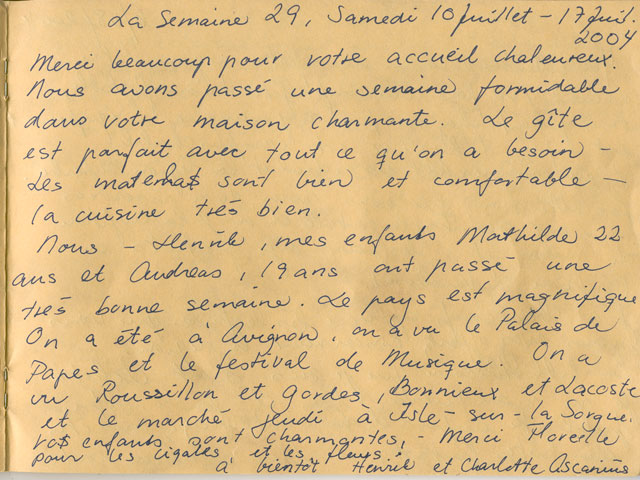 La Semaine 29, Samedi 10 Juillet - 17 Juil.
2004
Merci beaucoup pour votre accueil chaleureux.
Nous avons passé une semaine formidable
dans votre maison charmante. Le gîte
est parfait avec tout ce qu'on a besoin -
Les matelas sont bien et comfortable -
la cuisine très bien.
Nous - Henrik, mes enfants Mathilde 22
ans et Andreas, 19 ans ont passé une
très bonne semaine. Le pays est magnifique
On a été à Avignon, on a vu le Palais de
Papes et le festival de Musique. On a
vu Roussillon et Gordes, Bonnieux et Lacoste
et le marché jeudi à Isle-sur-la Sorgue.
vos enfants sont charmantes, - Merci
pour les cigales et les fleurs!
à bientôt Henrik et Charlotte Ascanius